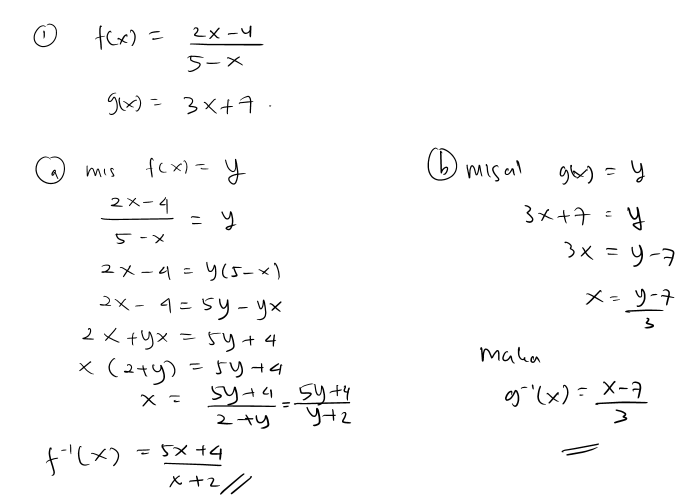 ① f(x) = \frac{2x-4}{5-x}
g(x) = 3x+7.
ⓐ mis f(x) = y
\frac{2x-4}{5-x} = y
2x-4 = y(5-x)
2x-4 = 5y-yx
2x+yx = 5y+4
x(2+y) = 5y+4
x = \frac{5y+4}{2+y} = \frac{5y+4}{y+2}
f^{-1}(x) = \frac{5x+4}{x+2} //
ⓑ misal g(x) = y
3x+7 = y
3x = y-7
x = \frac{y-7}{3}
maka
g^{-1}(x) = \frac{x-7}{3}